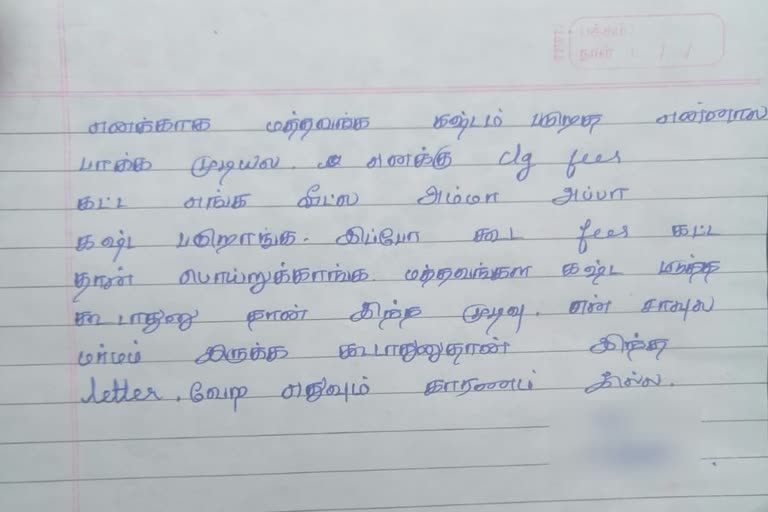 பக்கம் :
நாள் : / /
எனக்காக மத்தவங்க கஷ்டம் படுறத என்னால
பாக்க முடியல. எனக்கு clg fees
கட்ட எங்க வீட்ல அம்மா அப்பா
கஷ்ட படுறாங்க. இப்போ கூட fees கட்ட
தான் போய்ருக்காங்க. மத்தவங்கள கஷ்ட படுத்த
கூடாதுனு தான் இந்த முடிவு. என் சாவுல
மர்மம் இருக்க கூடாதுனுதான் இந்த
letter. வேற எதுவும் காரணம் இல்ல.